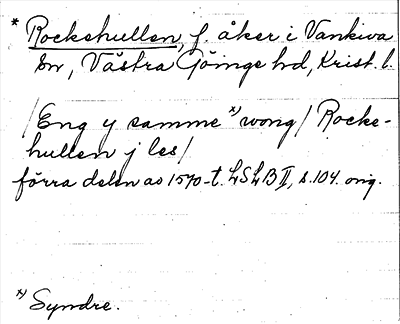 * Rockehullen, f. åker i Vankiva
sn, Västra Göinge hd, Krist. l.
/Eng y samme *) wong/ Rocke-
hullen j les/
förra delen av 1570-t. LSLB II, s. 104. orig.
*) Syndre.